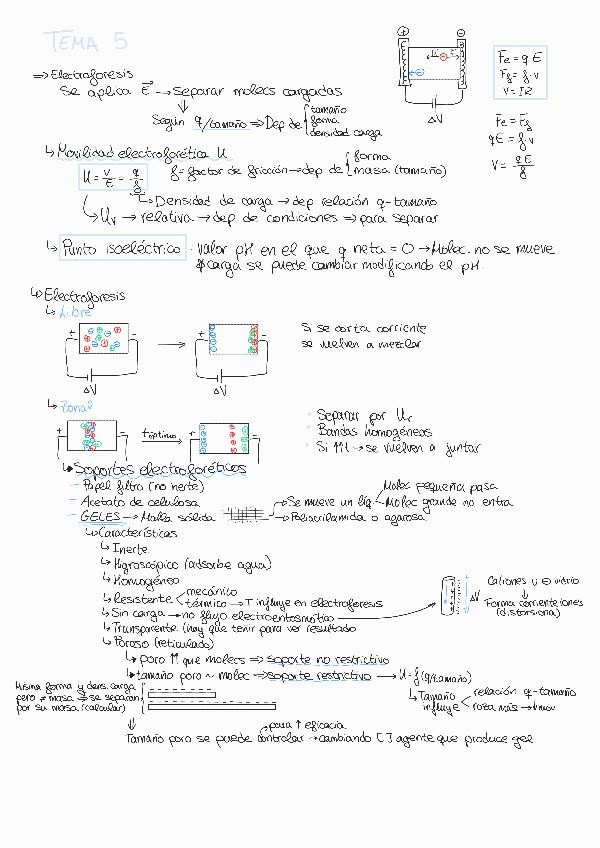 TEMA 5
⇒ Electroforesis
Se aplica E⃗ → Separar molecs cargadas
Según q/tamaño ⇒ Dep de { tamaño
forma
densidad carga
+ -
ΔV
Fe = q E
Ff = f · v
V = I R
Fe = Ff
qE = f · v
v = qE/f
↳ Movilidad electroforética u
u = v/E = q/f
f = factor de fricción → dep de { forma
masa (tamaño)
↳ Densidad de carga → dep relación q-tamaño
↳ Ur → relativa → dep de condiciones ⇒ para separar
↳ Punto isoeléctrico · Valor pH en el que q neta = 0 → Molec. no se mueve
carga se puede cambiar modificando el pH.
↳ Electroforesis
↳ Libre
+ - → + -
ΔV ΔV
Si se corta corriente
se vuelven a mezclar
↳ Zonal
+ - t óptimo + -
ΔV ΔV
· Separar por Ur
· Bandas homogéneas
· Si ↑↑t → se vuelven a juntar
↳ Soportes electroforéticos
- Papel filtro (no inerte)
- Acetato de celulosa
- GELES → Malla sólida
Se mueve un líq
Molec pequeña pasa
Molec grande no entra
Poliacrilamida o agarosa
↳ Características
↳ Inerte
↳ Higroscópico (adsorbe agua)
↳ Homogéneo
↳ Resistente < mecánico
térmico → T influye en electroforesis
↳ Sin carga → no flujo electroentosmótico
ΔV
Cationes y ⊖ vidrio
↓
Forma corriente iones
(distorsiona)
↳ Transparente (hay que teñir para ver resultado
↳ Poroso (reticulado)
↳ poro ↑ que molecs ⇒ soporte no restrictivo
↳ tamaño poro ~ molec ⇒ soporte restrictivo → u = f (q/tamaño)
↳ Tamaño influye < relación q-tamaño
roza más → ↓ mov
Misma forma y dens. carga
pero ≠ masa → se separan
por su masa (calcular)
para ↑ eficacia
Tamaño poro se puede controlar → cambiando [ ] agente que produce gel